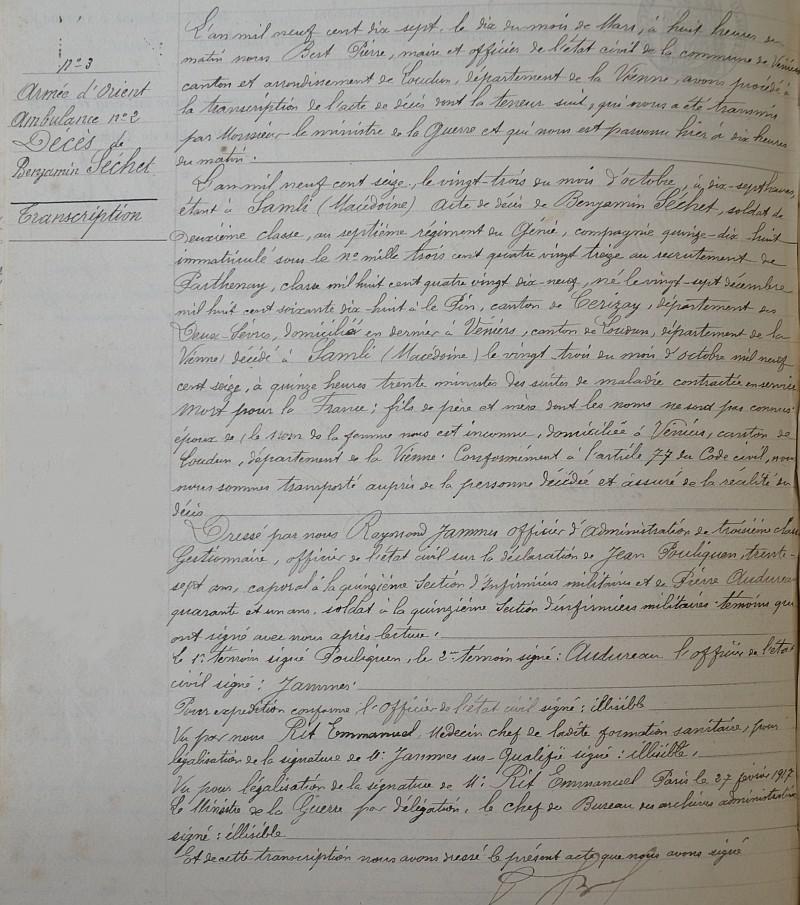 N° 3
Armée d'Orient
Ambulance n° 2
Décès de
Benjamin Séchet
Transcription
L'an mil neuf cent dix sept, le dix du mois de Mars, à huit heures du
matin nous Bert Pierre, maire et officier de l'état civil de la commune de Véniers
canton et arrondissement de Loudun, département de la Vienne, avons procédé à
la transcription de l'acte de décès dont la teneur suit, qui nous a été transmis
par Monsieur le ministre de la Guerre et qui nous est parvenu hier à dix heures
du matin.
L'an mil neuf cent seize, le vingt-trois du mois d'octobre, à dix-sept heures,
étant à Samli (Macédoine) Acte de décès de Benjamin Séchet, soldat de
deuxième classe, au septième régiment du Génie, compagnie quinze-dix-huit
immatriculé sous le n° mille trois cent quatre vingt treize au recrutement de
Parthenay, classe mil huit cent quatre vingt dix-neuf, né le vingt-sept décembre
mil huit cent soixante dix-huit à le Pin, canton de Cerizay, département des
Deux-Sèvres, domicilié en dernier à Véniers, canton de Loudun, département de la
Vienne, décédé à Samli (Macédoine) le vingt trois du mois d'octobre mil neuf
cent seize, à quinze heures trente minutes des suites de maladie contractée en service
Mort pour la France; fils de père et mère dont les noms ne sont pas connus
époux de (le nom de la femme nous est inconnu, domiciliée à Véniers, canton de
Loudun, département de la Vienne. Conformément à l'article 77 du Code civil, nous
nous sommes transporté auprès de la personne décédée et assuré de la réalité du
décès.
Dressé par nous Raymond Jammes officier d'administration de troisième classe
Gestionnaire, officier de l'état civil sur la déclaration de Jean Pouliquen, trente-
sept ans, caporal à la quinzième Section d'Infirmiers militaires et de Pierre Audureau
quarante et un ans, soldat à la quinzième Section d'infirmiers militaires témoins qui
ont signé avec nous après lecture.
Le 1er témoin signé Pouliquen, le 2me témoin signé: Audureau l'officier de l'état
civil signé: Jammes.
Pour expédition conforme l'Officier de l'état civil signé: illisible
Vu par nous Rit Emmanuel, Médecin chef de ladite formation sanitaire, pour
légalisation de la signature de Mr Jammes sus-qualifié signé: illisible.
Vu pour légalisation de la signature de Mr Rit Emmanuel Paris le 27 février 1917
Le Ministre de la Guerre par délégation, le chef du Bureau des archives administratives
signé: illisible
Et de cette transcription nous avons dressé le présent acte que nous avons signé